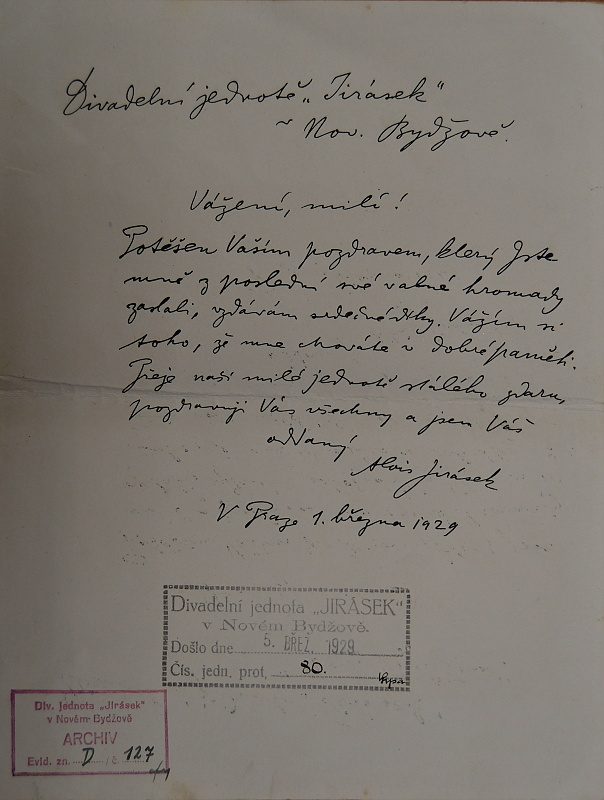 Divadelní jednotě „Jirásek"
v Nov. Bydžově.
Vážení, milí!
Potěšen Vaším pozdravem, který jste
mně z poslední své valné hromady
zaslali, vzdávám srdečné díky. Vážím si
toho, že mne chováte v dobré paměti.
Přeje naší milé jednotě stálého zdaru,
pozdravuji Vás všechny a jsem Váš
oddaný
Alois Jirásek
V Praze 1. března 1929
Divadelní jednota „JIRÁSEK"
v Novém Bydžově.
Došlo dne 5. BŘEZ. 1929
Čís. jedn. prot. 80.
Div. jednota „Jirásek"
v Novém Bydžově
ARCHIV
Evid. zn. D / č. 127